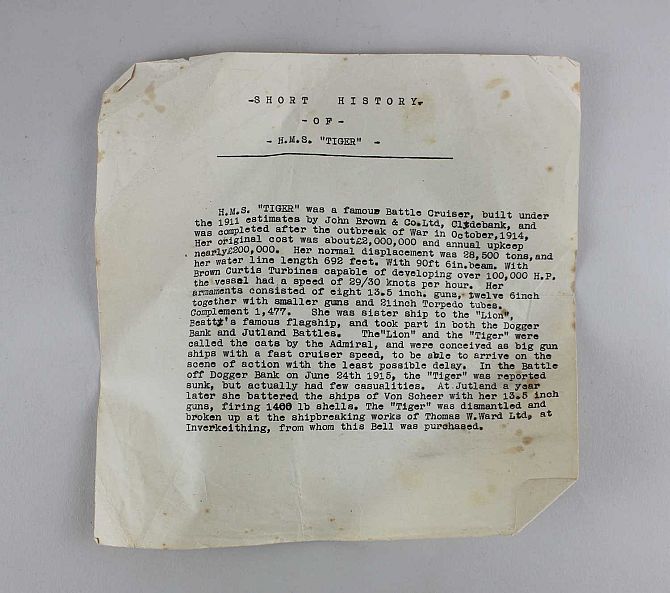 -SHORT HISTORY.
-OF-
- H.M.S. "TIGER" -
H.M.S. "TIGER" was a famous Battle Cruiser, built under
the 1911 estimates by John Brown & Co.Ltd, Clydebank, and
was completed after the outbreak of War in October,1914,
Her original cost was about£2,000,000 and annual upkeep
nearly£200,000. Her normal displacement was 28,500 tons,and
her water line length 692 feet. With 90ft 6in.beam. With
Brown Curtis Turbines capable of developing over 100,000 H.P.
the vessel had a speed of 29/30 knots per hour. Her
armaments consisted of eight 13.5 inch. guns, twelve 6inch
together with smaller guns and 21inch Torpedo tubes.
Complement 1,477. She was sister ship to the "Lion",
Beatty's famous flagship, and took part in both the Dogger
Bank and Jutland Battles. The"Lion" and the "Tiger" were
called the cats by the Admiral, and were conceived as big gun
ships with a fast cruiser speed, to be able to arrive on the
scene of action with the least possible delay. In the Battle
off Dogger Bank on June 24th 1915, the "Tiger" was reported
sunk, but actually had few casualities. At Jutland a year
later she battered the ships of Von Scheer with her 13.5 inch
guns, firing 1400 lb shells. The "Tiger" was dismantled and
broken up at the shipbreaking works of Thomas W.Ward Ltd, at
Inverkeithing, from whom this Bell was purchased.